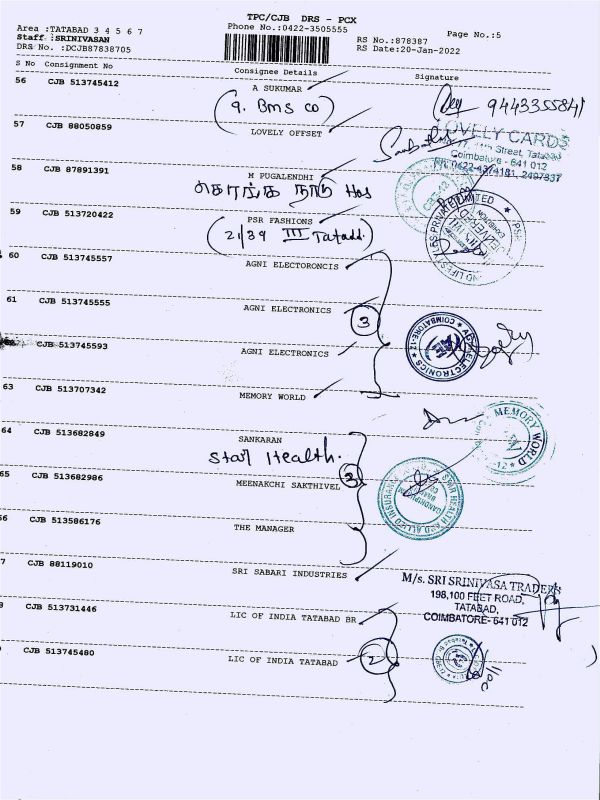 TPC/CJB DRS - PCX
Area :TATABAD 3 4 5 6 7
Phone No.:0422-3505555
Page No.:5
Staff :SRINIVASAN
RS No.:878387
DRS No. :DCJB87838705
RS Date:20-Jan-2022
S No Consignment No Consignee Details Signature
56 CJB 513745412 A SUKUMAR
(9. Bms co) 9443355841
57 CJB 88050859 LOVELY OFFSET
LOVELY CARDS
Street, Tatabad
Coimbatore - 641 012
58 CJB 87891391 M PUGALENDHI
கொங்கு நாடு Hos
59 CJB 513720422 PSR FASHIONS
(21/39 III Tatabad.)
60 CJB 513745557 AGNI ELECTORONCIS
61 CJB 513745555 AGNI ELECTRONICS
3
CJB 513745593 AGNI ELECTRONICS
COIMBATORE-12
63 CJB 513707342 MEMORY WORLD
MEMORY WORLD
64 CJB 513682849 SANKARAN
Star Health.
65 CJB 513682986 MEENAKCHI SAKTHIVEL
3
STAR HEALTH AND ALLIED INSURANCE
66 CJB 513586176 THE MANAGER
7 CJB 88119010 SRI SABARI INDUSTRIES
M/s. SRI SRINIVASA TRADERS
198,100 FEET ROAD,
TATABAD,
COIMBATORE- 641 012
8 CJB 513731446 LIC OF INDIA TATABAD BR
9 CJB 513745480 LIC OF INDIA TATABAD
2